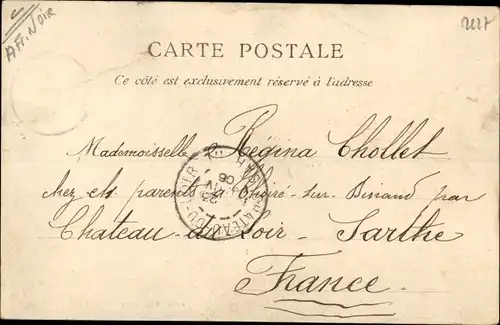 Aff. Noir
2227
CARTE POSTALE
Ce côté est exclusivement réservé à l'adresse
Mademoisselle Régina Chollet
chez ch. parents à Thiré-sur-Dinaud par
Chateau-du-Loir - Sarthe
France
CHATEAU-DU-LOIR
25
06